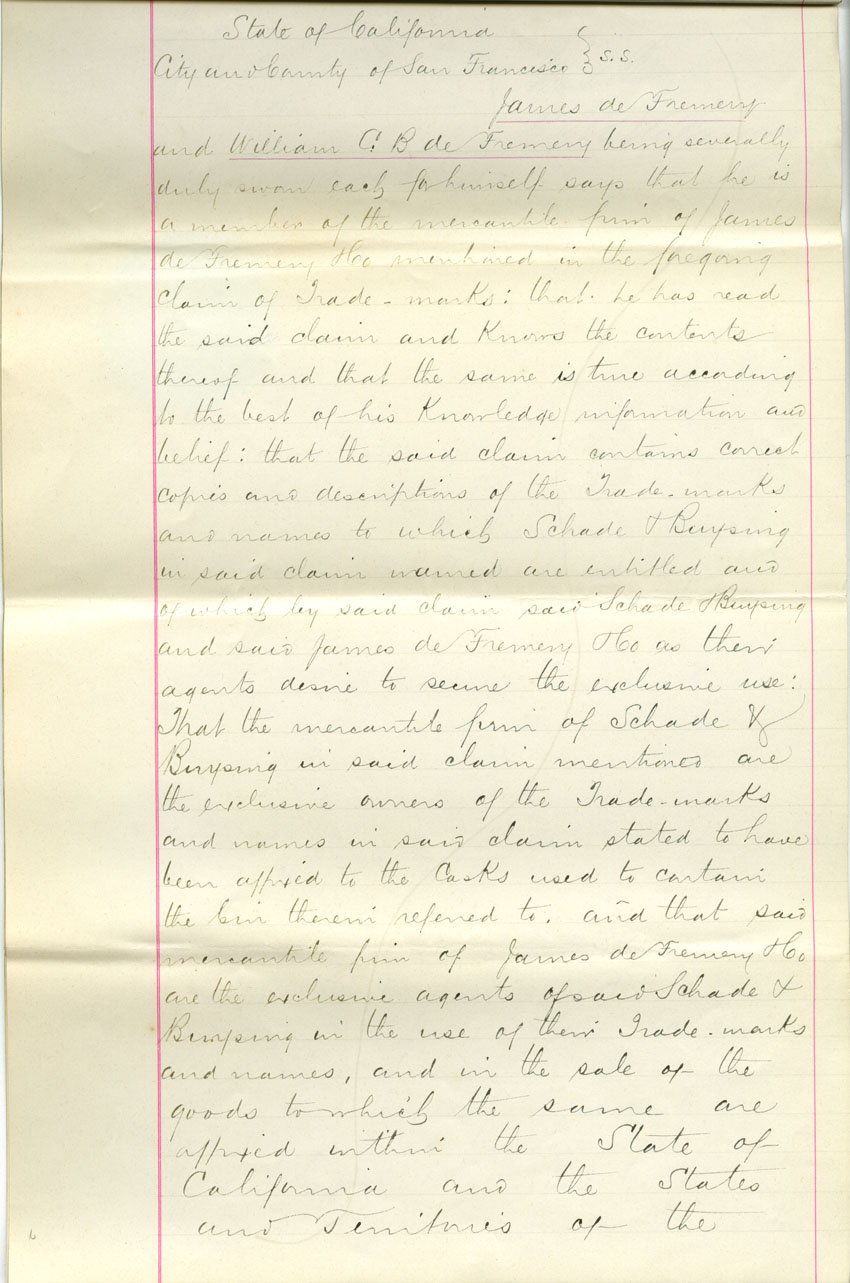 State of California
City and County of San Francisco } S.S.
James de Fremery
and William C. B de Fremery being severally
duly sworn each for himself says that he is
a member of the mercantile firm of James
de Fremery & Co mentioned in the foregoing
claim of Trade-marks: that he has read
the said claim and Knows the contents
thereof and that the same is true according
to the best of his Knowledge information and
belief: that the said claim contains correct
copies and descriptions of the Trade-marks
and names to which Schade & Buysing
in said claim named are entitled and
of which by said claim said Schade & Buysing
and said James de Fremery & Co as their
agents desire to secure the exclusive use:
That the mercantile firm of Schade &
Buysing in said claim mentioned are
the exclusive owners of the Trade-marks
and names in said claim stated to have
been affixed to the Casks used to contain
the Gin therein referred to. and that said
mercantile firm of James de Fremery & Co
are the exclusive agents of said Schade &
Buysing in the use of their Trade-marks
and names, and in the sale of the
goods to which the same are
affixed within the State of
California and the States
and Territories of the
6